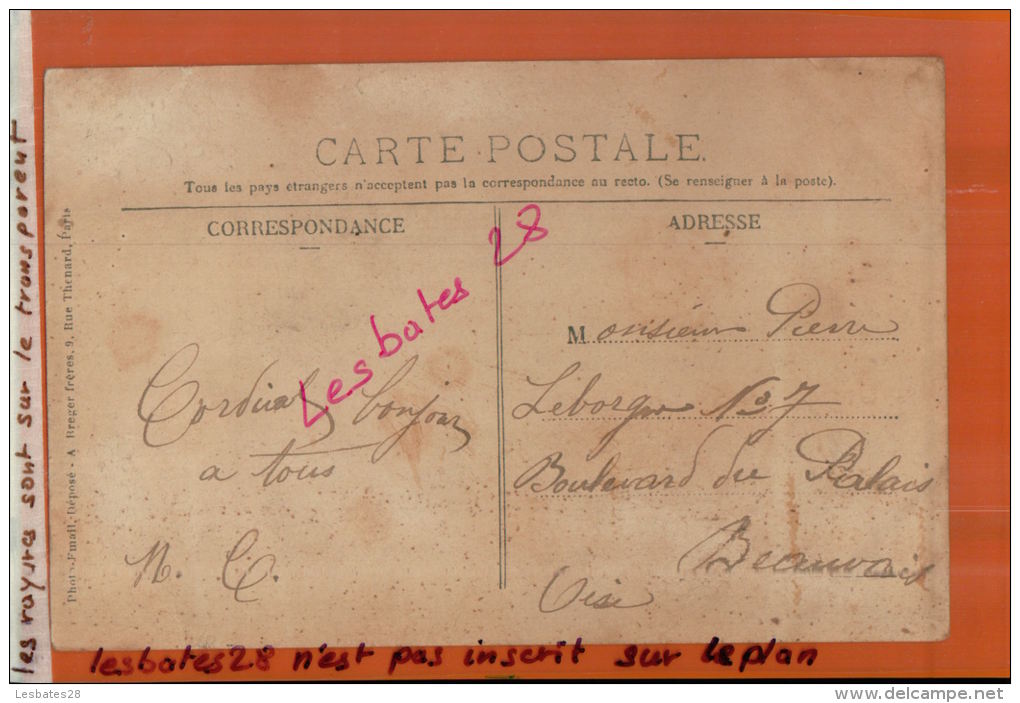 CARTE POSTALE.
Tous les pays étrangers n'acceptent pas la correspondance au recto. (Se renseigner à la poste).
CORRESPONDANCE
ADRESSE
Photo-Email. Déposé - A Breger frères, 9, Rue Thenard, Paris
Lesbates 28
Cordial bonjour
a tous
Monsieur Pierre
Leborgne No 7
Boulevard du Palais
Beauvais
Oise
les rayures sont sur le transparent
lesbates28 n'est pas inscrit sur le plan
Lesbates28
delcampe.net